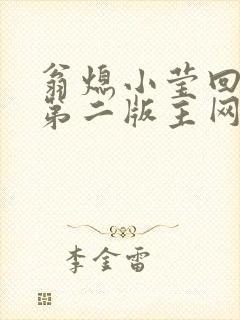 翁熄小莹回
第二版主网
李金雷